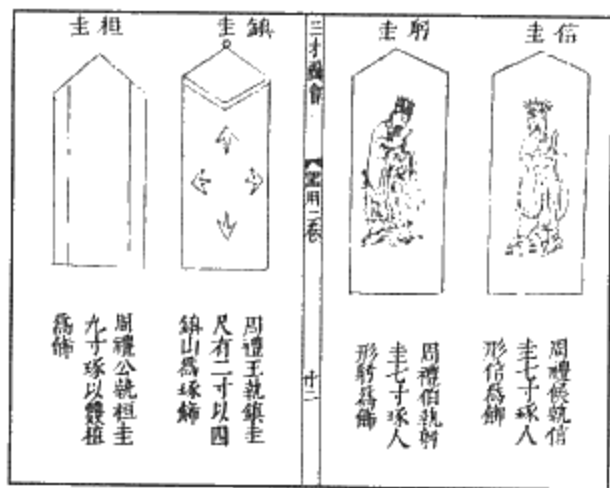 信圭
周禮侯執信
圭七寸琢人
形信爲飾
躬圭
周禮伯執躬
圭七寸琢人
形躬爲飾
三才圖會
器用二卷
廿二
鎮圭
周禮王執鎮圭
尺有二寸以四
鎮山爲琢飾
桓圭
周禮公執桓圭
九寸琢以雙植
爲飾